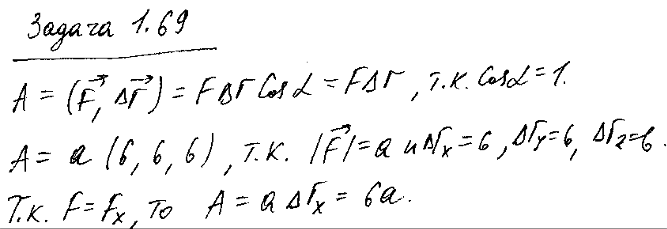 Задача 1.69
A = (F⃗, Δr⃗) = FΔr Cos α = FΔr, т.к. Cos α = 1.
A = a (6, 6, 6), т.к. |F⃗| = a и Δrx = 6, Δry = 6, Δrz = 6.
Т.к. F = Fx, то A = a Δrx = 6a.